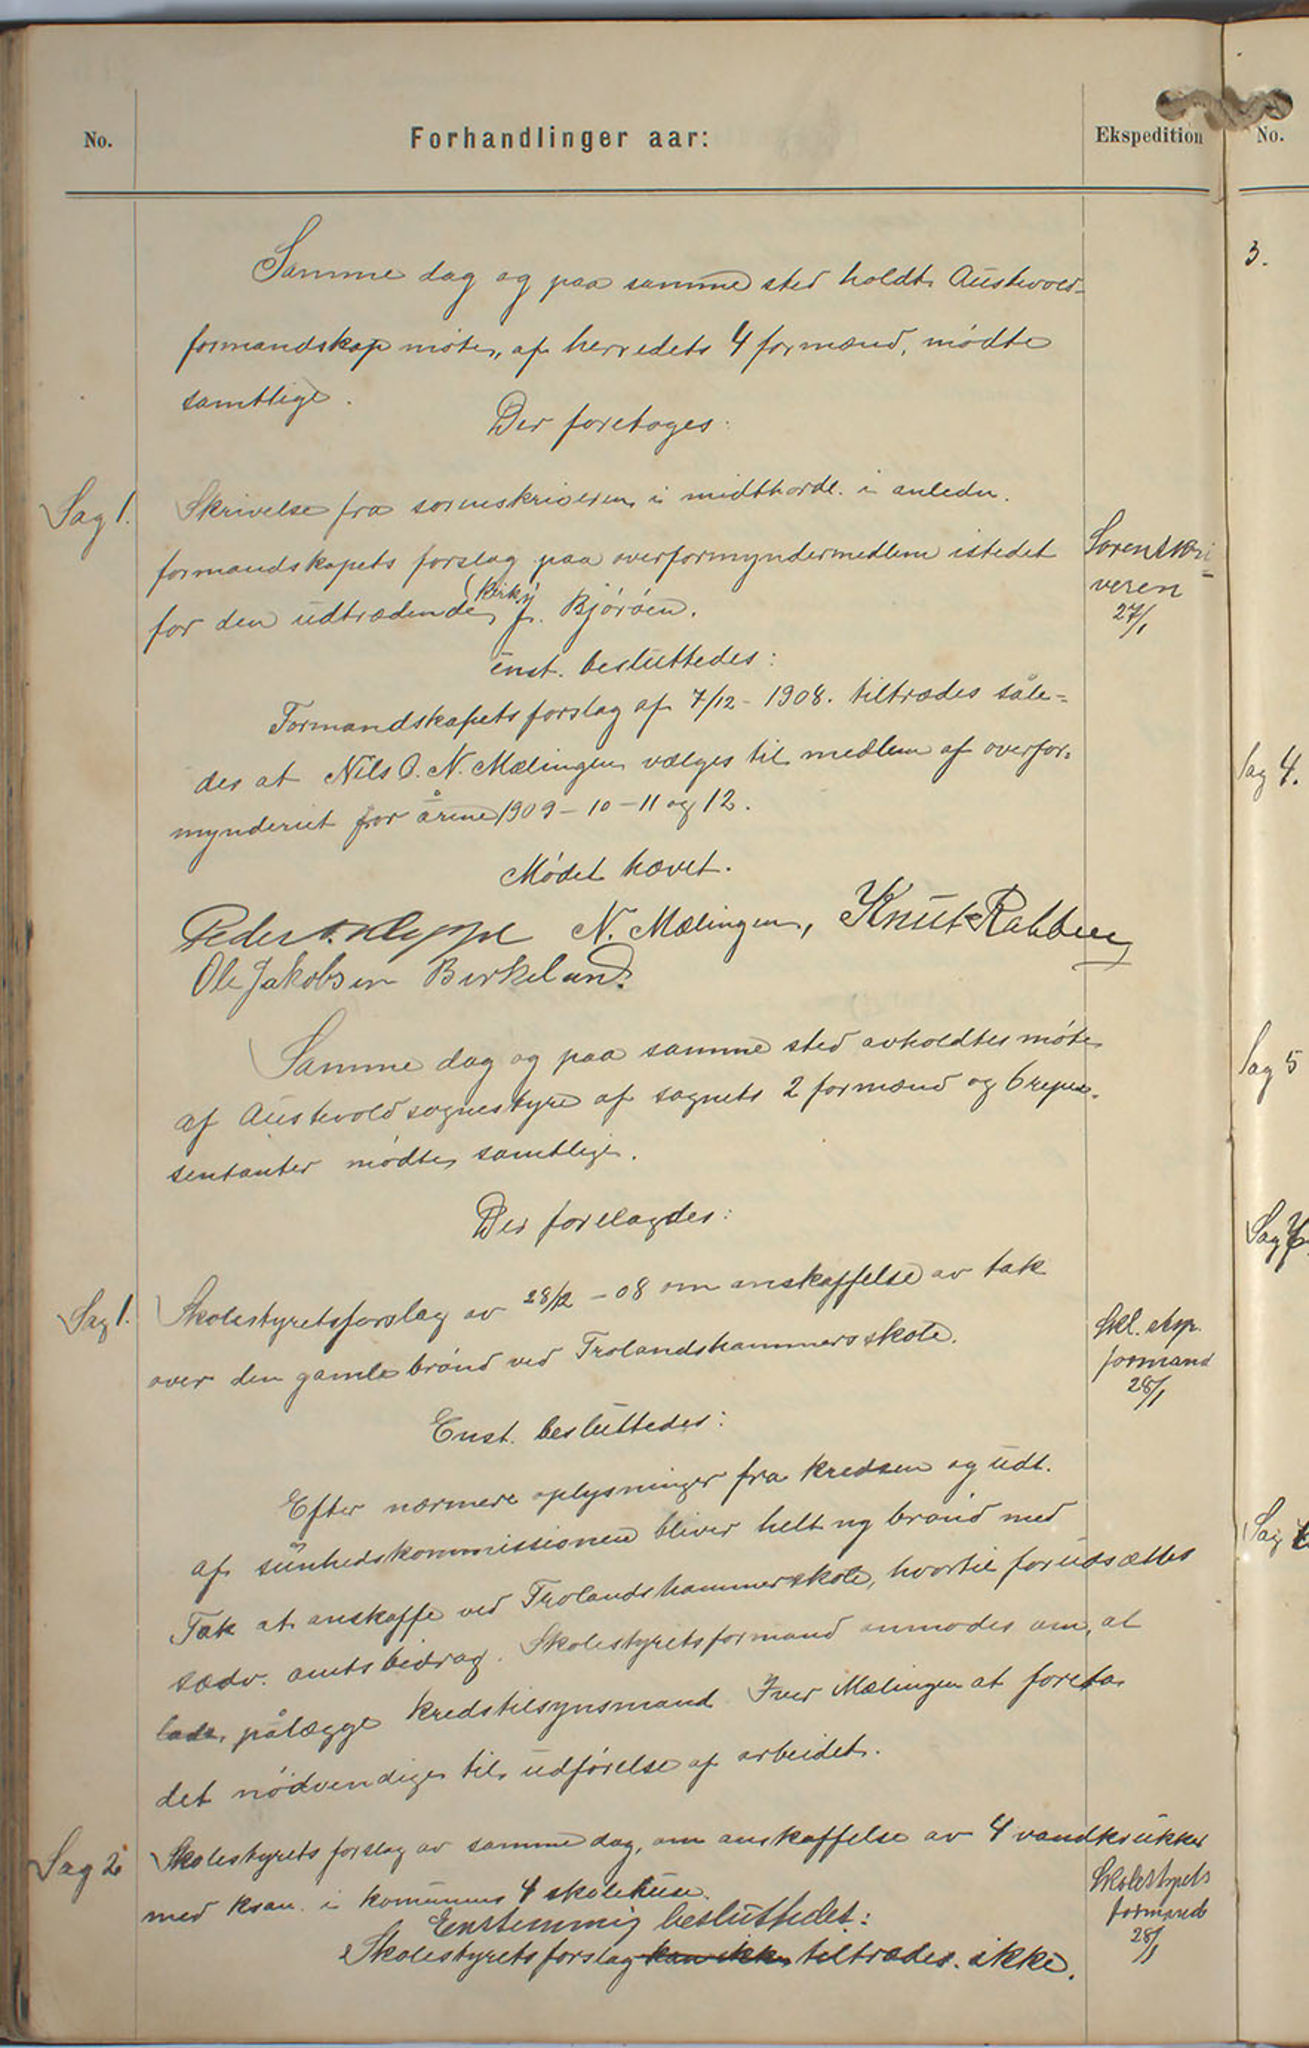 No.
Forhandlinger aar:
Ekspedition
No.
Samme dag og paa samme sted holdt Austevold-
formandskap møte, af herredets 4 formænd, mødte
samtlige.
Der foretoges:
Sag 1.
Skrivelse fra sorenskriveren i midthordl. i anledn.
formandskapets forslag paa overformyndermedlem istedet
for den udtrædende J. Bjørøen.
Sorenskri-
veren
27/1
enst. besluttedes:
Formandskapets forslag af 7/12 - 1908. tiltrædes såle-
des at Nils O. N. Mælingen vælges til medlem af overfor-
mynderiet for årene 1909 - 10 - 11 og 12.
Mødet hævet.
Peder N. Mælingen, Knut Rabben
Ole Jakobsen Birkeland.
Samme dag og paa samme sted avholdtes møte
af Austevold sognestyre af sognets 2 formænd og 6 repræ-
sentanter mødte samtlige.
Der forelagdes:
Sag 1.
Skolestyrets forslag av 28/12 - 08 om anskaffelse av tak
over den gamle brønd ved Trolandshammers skole.
Skl. eksp.
formand
28/1
Enst. besluttedes:
Efter nærmere oplysninger fra kredsen og udt.
af sunhedskommissionen bliver helt ny brønd med
Tak at anskaffe ved Trolandshammerskole, hvortil forudsættes
sædv. amtsbidrag. Skolestyrets formand anmodes om, at
lade pålægge kredstilsynsmand Iver Mælingen at foreta
det nødvendige til udførelse af arbeidet.
Sag 2
Skolestyrets forslag av samme dag, om anskaffelse av 4 vandkrukker
med kran i komunens 4 skolehuse.
Skolestyrets
formand
28/1
Eenstemmig besluttedes:
Skolestyrets forslag kan ikke tiltrædes. ikke.
3.
Sag 4.
Sag 5
Sag
Sag